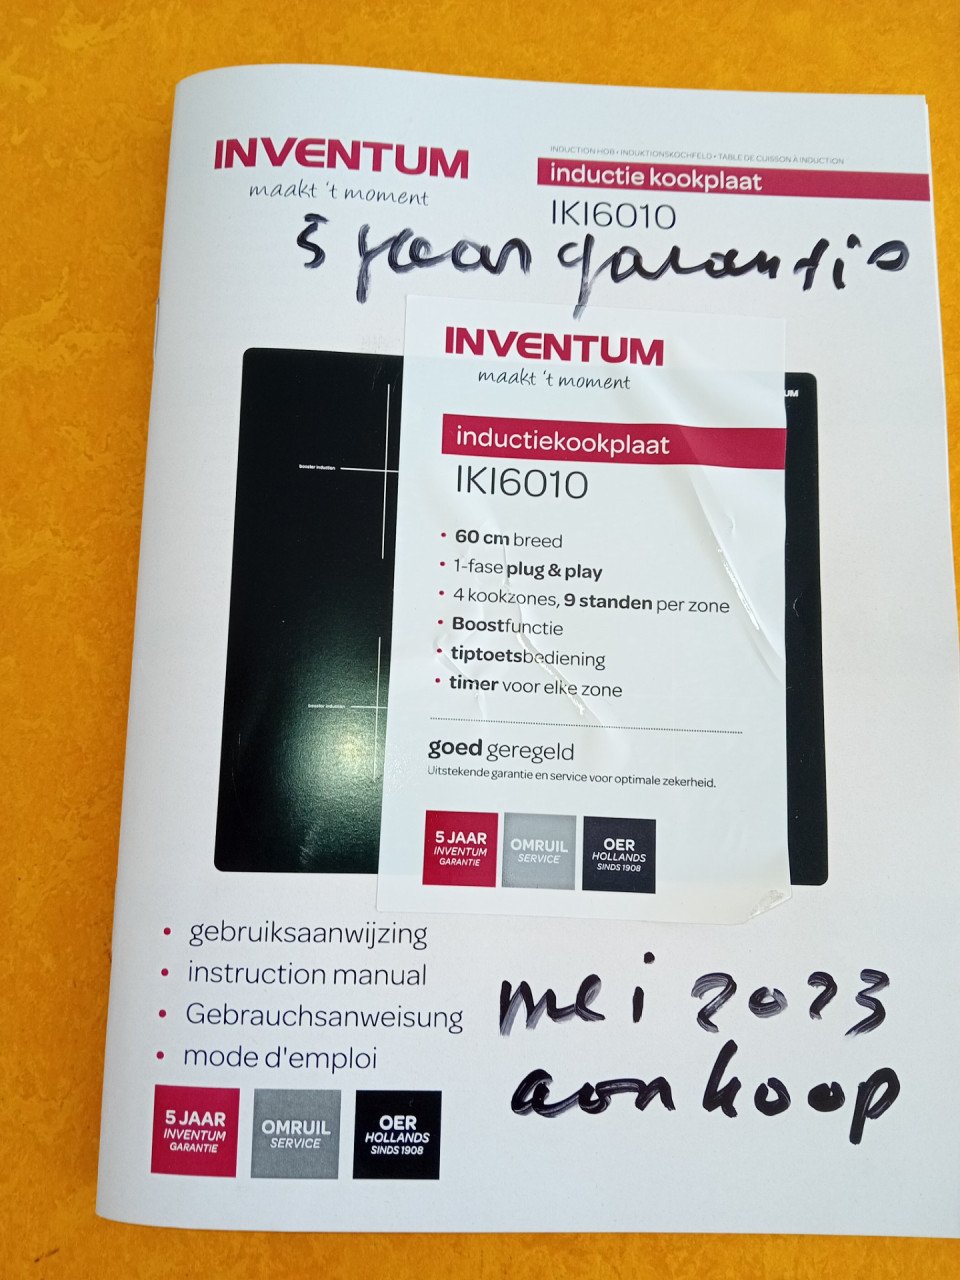 INVENTUM
maakt 't moment
INDUCTION HOB • INDUKTIONSKOCHFELD • TABLE DE CUISSON À INDUCTION
inductie kookplaat
IKI6010
5 jaar garantie
INVENTUM
maakt 't moment
UM
inductiekookplaat
IKI6010
booster induction
• 60 cm breed
• 1-fase plug & play
• 4 kookzones, 9 standen per zone
• Boostfunctie
• tiptoetsbediening
• timer voor elke zone
booster induction
goed geregeld
Uitstekende garantie en service voor optimale zekerheid.
5 JAAR
INVENTUM
GARANTIE
OMRUIL
SERVICE
OER
HOLLANDS
SINDS 1908
• gebruiksaanwijzing
• instruction manual
• Gebrauchsanweisung
• mode d'emploi
mei 2023
aankoop
5 JAAR
INVENTUM
GARANTIE
OMRUIL
SERVICE
OER
HOLLANDS
SINDS 1908